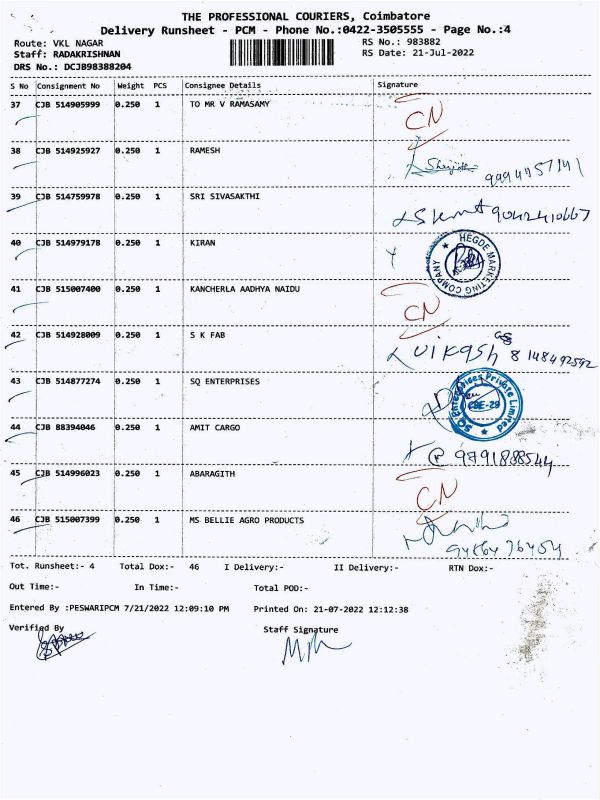 THE PROFESSIONAL COURIERS, Coimbatore
Delivery Runsheet - PCM - Phone No.:0422-3505555 - Page No.:4
Route: VKL NAGAR RS No.: 983882
Staff: RADAKRISHNAN RS Date: 21-Jul-2022
DRS No.: DCJB98388204
S No Consignment No Weight PCS Consignee Details Signature
37 CJB 514905999 0.250 1 TO MR V RAMASAMY CN
38 CJB 514925927 0.250 1 RAMESH
39 CJB 514759978 0.250 1 SRI SIVASAKTHI 9042410667
40 CJB 514979178 0.250 1 KIRAN HEGDE MARKETING COMPANY
41 CJB 515007400 0.250 1 KANCHERLA AADHYA NAIDU CN
42 CJB 514928009 0.250 1 S K FAB vikash 8148492592
43 CJB 514877274 0.250 1 SQ ENTERPRISES SQ Enterprises Private Limited CBE-29
44 CJB 88394046 0.250 1 AMIT CARGO 9791888544
45 CJB 514996023 0.250 1 ABARAGITH CN
46 CJB 515007399 0.250 1 MS BELLIE AGRO PRODUCTS
Tot. Runsheet:- 4 Total Dox:- 46 I Delivery:- II Delivery:- RTN Dox:-
Out Time:- In Time:- Total POD:-
Entered By :PESWARIPCM 7/21/2022 12:09:10 PM Printed On: 21-07-2022 12:12:38
Verified By Staff Signature